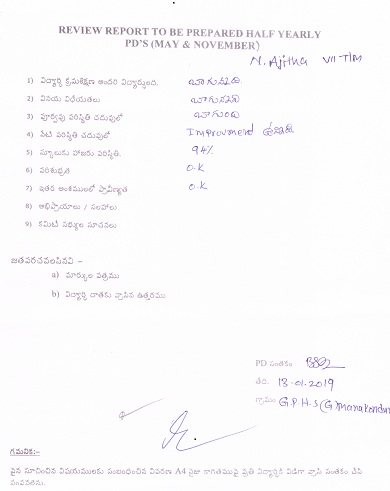 REVIEW REPORT TO BE PREPARED HALF YEARLY
PD'S (MAY & NOVEMBER)
N. Ajitha VII T/M
1) విద్యార్థి క్రమశిక్షణ అందరి విద్యార్థులది. బాగున్నది.
2) వినయ విధేయతలు బాగున్నవి
3) పూర్వపు పరిస్థితి చదువులో బాగుంది
4) నేటి పరిస్థితి చదువులో Improvmend ఉన్నది
5) స్కూలుకు హాజరు పరిస్థితి. 94%
6) పరిశుభ్రత O.K
7) ఇతర అంశములలో ప్రావీణ్యత O.K
8) అభిప్రాయాలు / సలహాలు
9) కమిటీ సభ్యుల సూచనలు
జతపరచవలసినవి :-
a) మార్కుల పత్రము
b) విద్యార్థి దాతకు వ్రాసిన ఉత్తరము
PD సంతకం
తేది. 13-01-2019
గ్రామం G.P.H.S (G) Manakondur
గమనిక:-
పైన సూచించిన విషయములకు సంబంధించిన వివరణ A4 సైజు కాగితముపై ప్రతి విద్యార్థికి విడిగా వ్రాసి సంతకం చేసి
పంపవలెను.